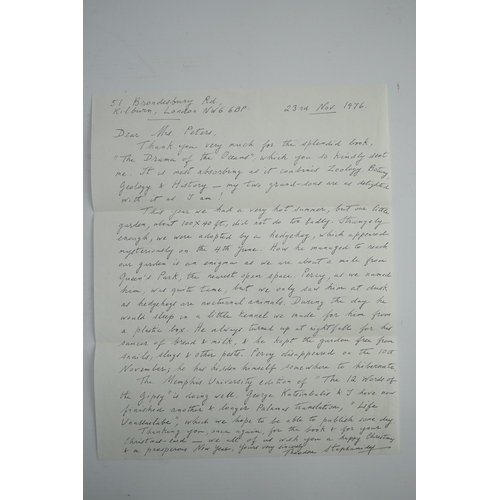 51 Brondesbury Rd,
Kilburn, London NW6 6BP 23rd Nov. 1976.
Dear Mrs. Peters,
Thank you very much for the splendid book,
"The Drama of the Oceans" which you so kindly sent
me. It is most absorbing as it contains Zoology, Botany,
Geology & History — my two grand-sons are as delighted
with it as I am!
This year we had a very hot summer, but our little
garden, about 100 x 40 ft, did not do too badly. Strangely
enough, we were adopted by a hedgehog, which appeared
mysteriously on the 4th June. How he managed to reach
our garden is an enigma as we are about a mile from
Queen's Park, the nearest open space. Percy, as we named
him, was quite tame, but we only saw him at dusk
as hedgehogs are nocturnal animals. During the day he
would sleep in a little kennel we made for him from
a plastic box. He always turned up at nightfall for his
saucer of bread & milk, & he kept the garden free from
snails, slugs & other pests. Percy disappeared on the 10th
November; he has hidden himself somewhere to hibernate.
The Memphis University edition of "The 12 Words of
the Gipsy" is doing well. George Katsimbalis & I have now
finished another & longer Palamas translation, "Life
", which we hope to be able to publish some day.
Thanking you, once again, for the book & for your
Christmas card — we all of us wish you a happy Christmas
& a prosperous New Year, Yours very sincerely
Theodore Stephanides